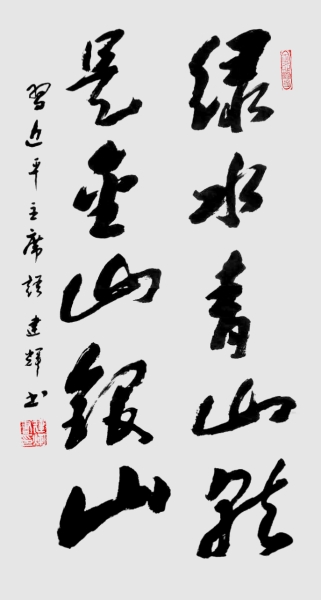 绿水青山就
是金山銀山
習近平主席语 建輝书